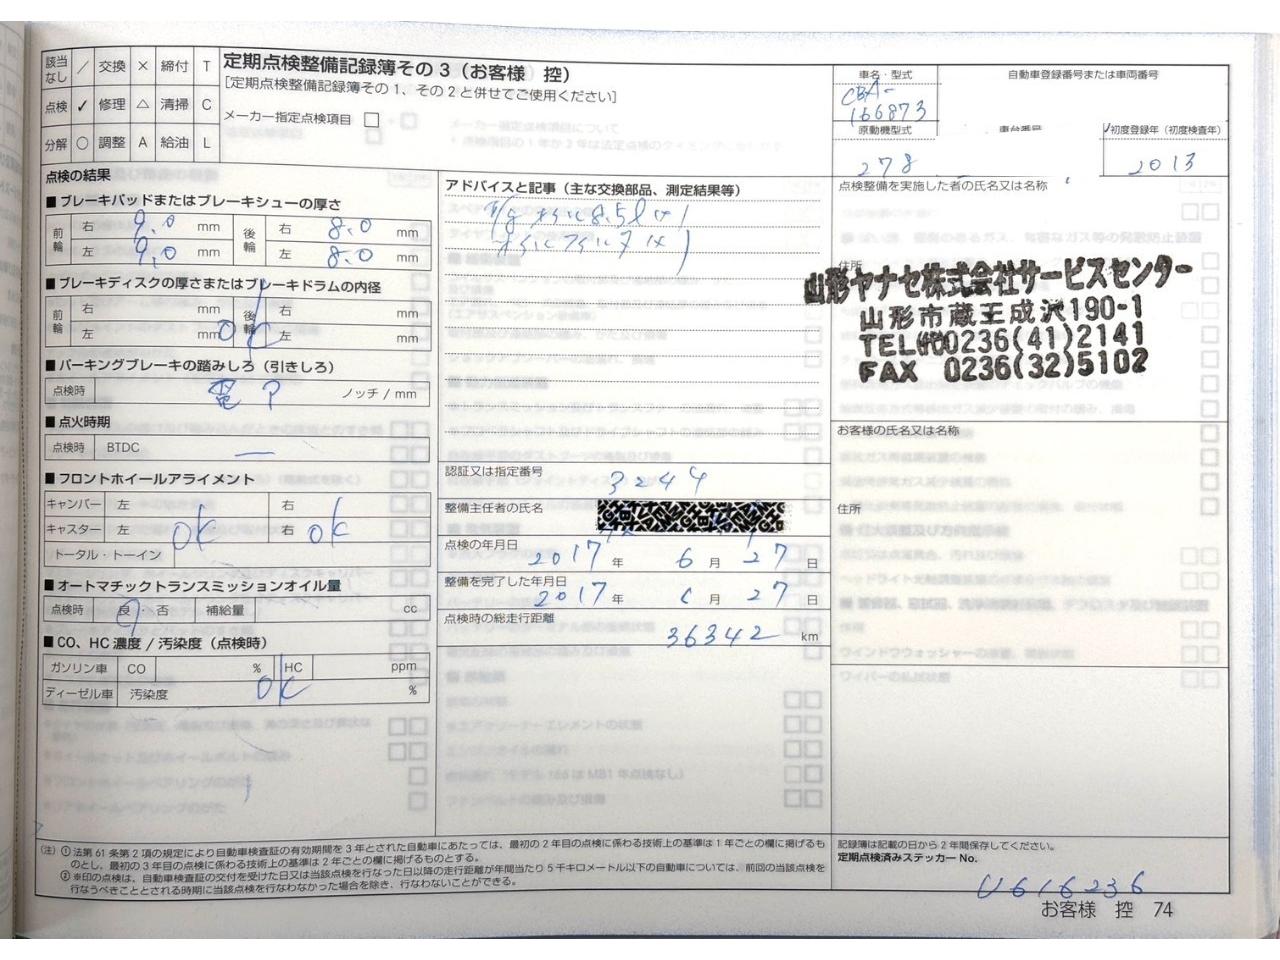 該当なし ／ 交換 × 締付 T
点検 ✓ 修理 △ 清掃 C
分解 ○ 調整 A 給油 L
定期点検整備記録簿その3（お客様 控）
［定期点検整備記録簿その1、その2と併せてご使用ください］
メーカー指定点検項目 □
車名・型式
CBA-
166873
自動車登録番号または車両番号
原動機型式
278
車台番号
初度登録年（初度検査年）
2013
点検の結果
■ ブレーキパッドまたはブレーキシューの厚さ
前輪 右 9.0 mm 後輪 右 8.0 mm
左 9.0 mm 左 8.0 mm
■ ブレーキディスクの厚さまたはブレーキドラムの内径
前輪 右 mm 後輪 右 mm
左 mm 左 mm
OK
■ パーキングブレーキの踏みしろ（引きしろ）
点検時 ノッチ / mm
■ 点火時期
点検時 BTDC —
■ フロントホイールアライメント
キャンバー 左 右
キャスター 左 OK 右 OK
トータル・トーイン
■ オートマチックトランスミッションオイル量
点検時 良・否 補給量 cc
■ CO、HC濃度 / 汚染度（点検時）
ガソリン車 CO % HC ppm
ディーゼル車 汚染度 OK %
アドバイスと記事（主な交換部品、測定結果等）
認証又は指定番号
3244
整備主任者の氏名
点検の年月日
2017 年 6 月 27 日
整備を完了した年月日
2017 年 6 月 27 日
点検時の総走行距離
36342 km
点検整備を実施した者の氏名又は名称
住所
山形ヤナセ株式会社サービスセンター
山形市蔵王成沢190-1
TEL(代)0236(41)2141
FAX 0236(32)5102
お客様の氏名又は名称
住所
（注）① 法第61条第2項の規定により自動車検査証の有効期間を3年とされた自動車にあたっては、最初の2年目の点検に係わる技術上の基準は1年ごとの欄に掲げるも
のとし、最初の3年目の点検に係わる技術上の基準は2年ごとの欄に掲げるものとする。
② ※印の点検は、自動車検査証の交付を受けた日又は当該点検を行なった日以降の走行距離が年間当たり5千キロメートル以下の自動車については、前回の当該点検を
行なうべきこととされる時期に当該点検を行なわなかった場合を除き、行なわないことができる。
記録簿は記載の日から2年間保存してください。
定期点検済みステッカー No.
U616236
お客様 控 74